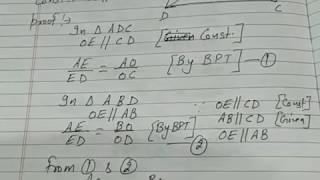 D C
proof :-
In Δ ADC
OE // CD [Given Const.]
AE/ED = AO/OC [By BPT] — ①
In Δ ABD ∵ OE//CD [Const]
OE // AB AB//CD [Given]
AE/ED = BO/OD [By BPT] OE//AB
②
from ① & ②